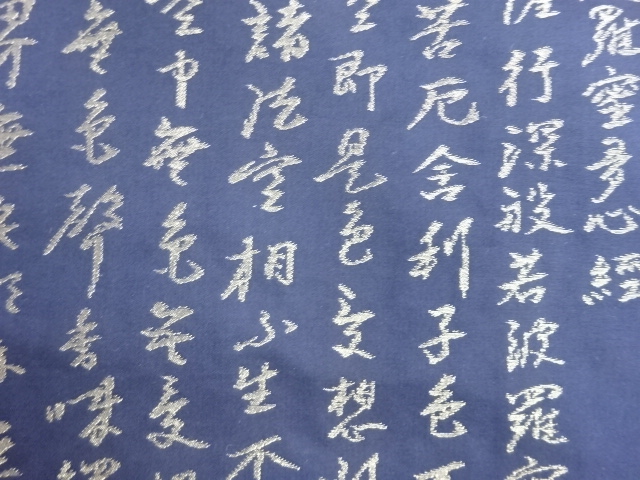 羅蜜多心經
行深般若波羅蜜
苦厄舍利子色不
即是色受想
諸法空相不生不
空中無色無受
無色聲香味
界無